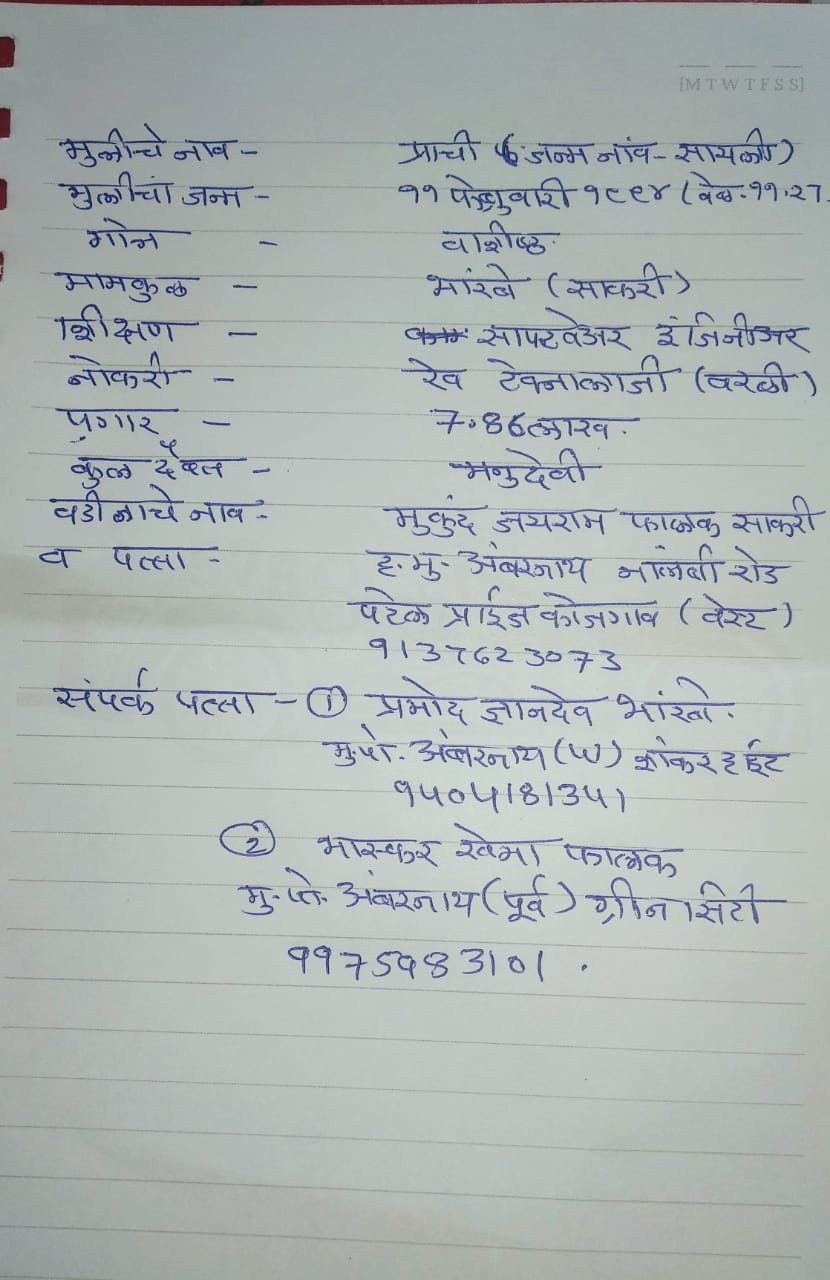 [M T W T F S S]
मुलीचे नाव - प्राची (जन्म नांव - सायली)
मुलीचा जन्म - ११ फेब्रुवारी १९९४ (वेळ. ११.२7
गोत्र - वाशीष्ठ.
मामकुळ - भारंबे (साकरी)
शिक्षण - साफ्टवेअर इंजिनीअर
नोकरी - रेव टेक्नालाजी (वरळी)
पगार - 7.86 लाख.
कुल दैवत - मनुदेवी
वडीलाचे नाव - मुकुंद जयराम फालक साकरी
व पत्ता - ह.मु. अंबरनाथ नालंबी रोड
पटेल प्राईज कोजगाव (वेस्ट)
९137623073
संपर्क पत्ता - ① प्रमोद ज्ञानदेव भारंबे.
मु.पो. अंबरनाथ (W) शंकर हाईट
९५०५181३५1
② भास्कर खेमा फालक
मु.पो. अंबरनाथ (पूर्व) ग्रीन सिटी